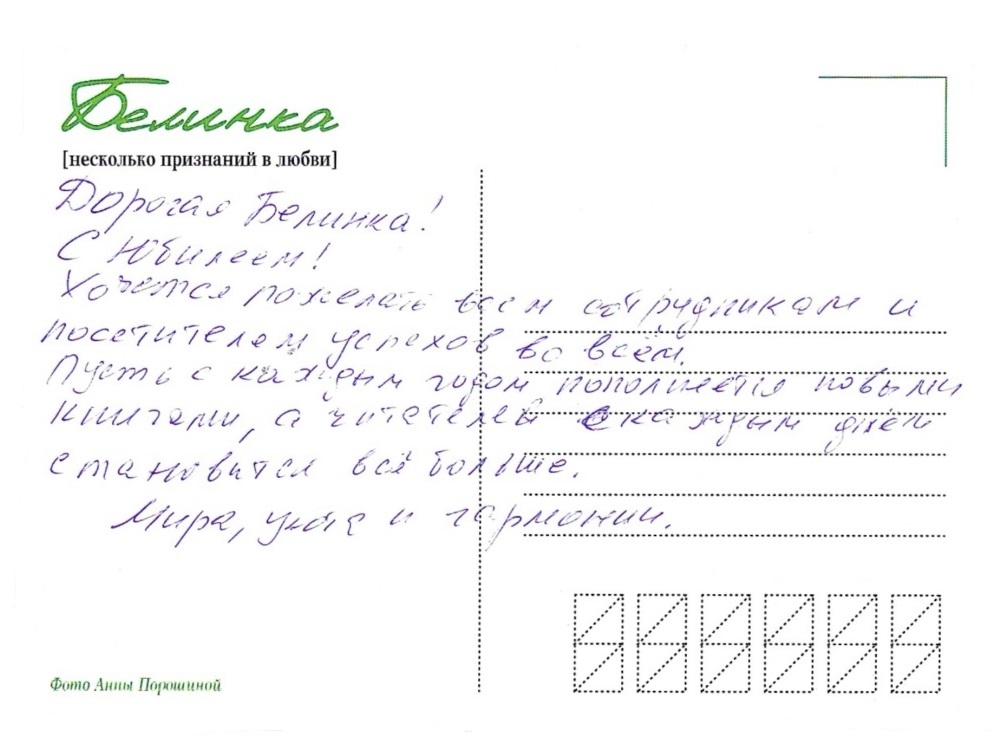 Белинка
[несколько признаний в любви]
Дорогая Белинка!
С Юбилеем!
Хочется пожелать всем сотрудникам и
посетителям успехов во всём.
Пусть с каждым годом пополняется новыми
книгами, а читателей с каждым днём
становится всё больше.
Мира, уюта и гармонии.
Фото Анны Порошиной